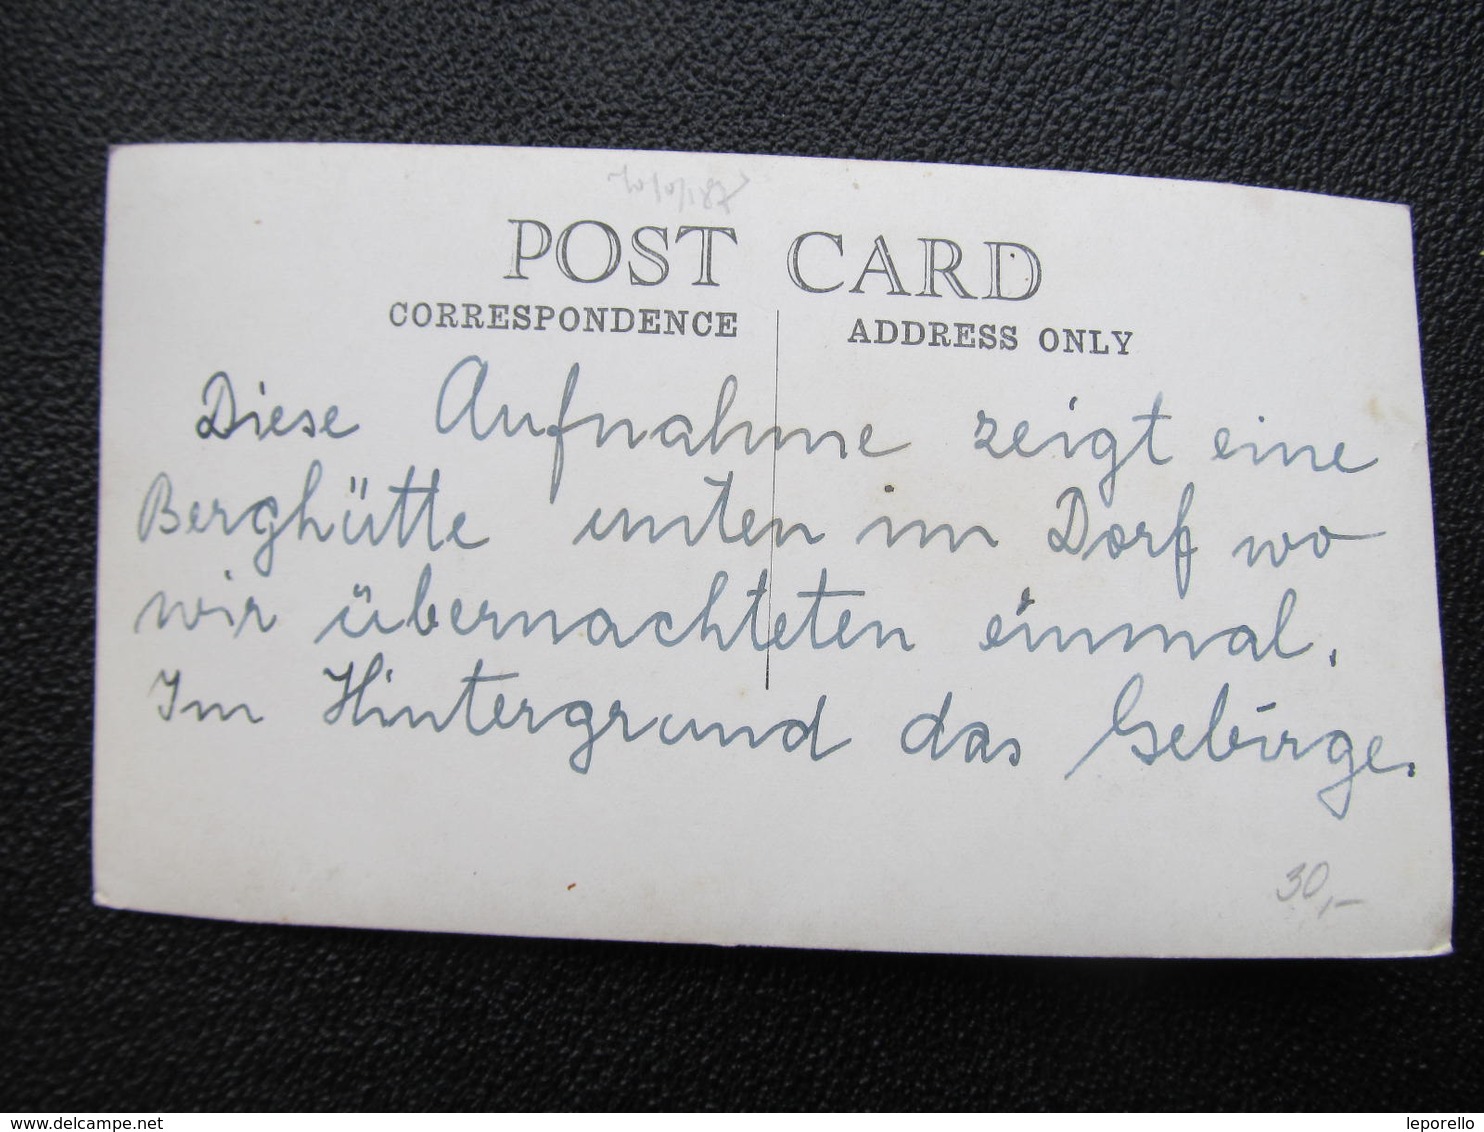 POST CARD
CORRESPONDENCE ADDRESS ONLY
Diese Aufnahme zeigt eine
Berghütte unten im Dorf wo
wir übernachteten einmal.
Im Hintergrund das Gebirge.
30,-
www.delcampe.net leporello